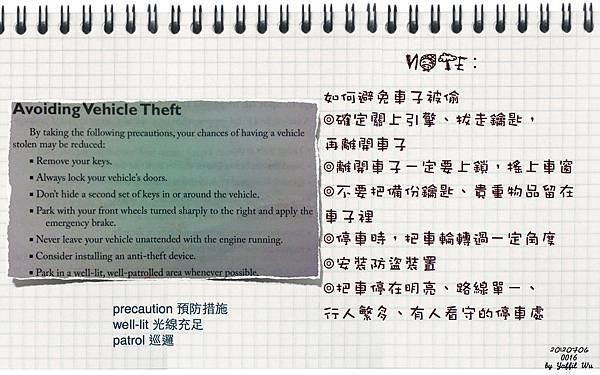 NOTE:
Avoiding Vehicle Theft
By taking the following precautions, your chances of having a vehicle
stolen may be reduced:
▪ Remove your keys.
▪ Always lock your vehicle's doors.
▪ Don't hide a second set of keys in or around the vehicle.
▪ Park with your front wheels turned sharply to the right and apply the
emergency brake.
▪ Never leave your vehicle unattended with the engine running.
▪ Consider installing an anti-theft device.
▪ Park in a well-lit, well-patrolled area whenever possible.
precaution 預防措施
well-lit 光線充足
patrol 巡邏
如何避免車子被偷
◎確定關上引擎、拔走鑰匙，
再離開車子
◎離開車子一定要上鎖，搖上車窗
◎不要把備份鑰匙、貴重物品留在
車子裡
◎停車時，把車輪轉過一定角度
◎安裝防盜裝置
◎把車停在明亮、路線單一、
行人繁多、有人看守的停車處
20120706
0016
by Yoffil Wu